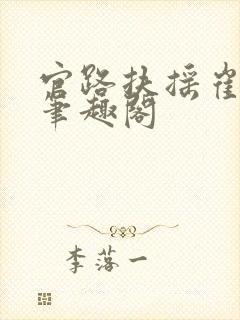 官路扶摇崔
笔趣阁
李落一